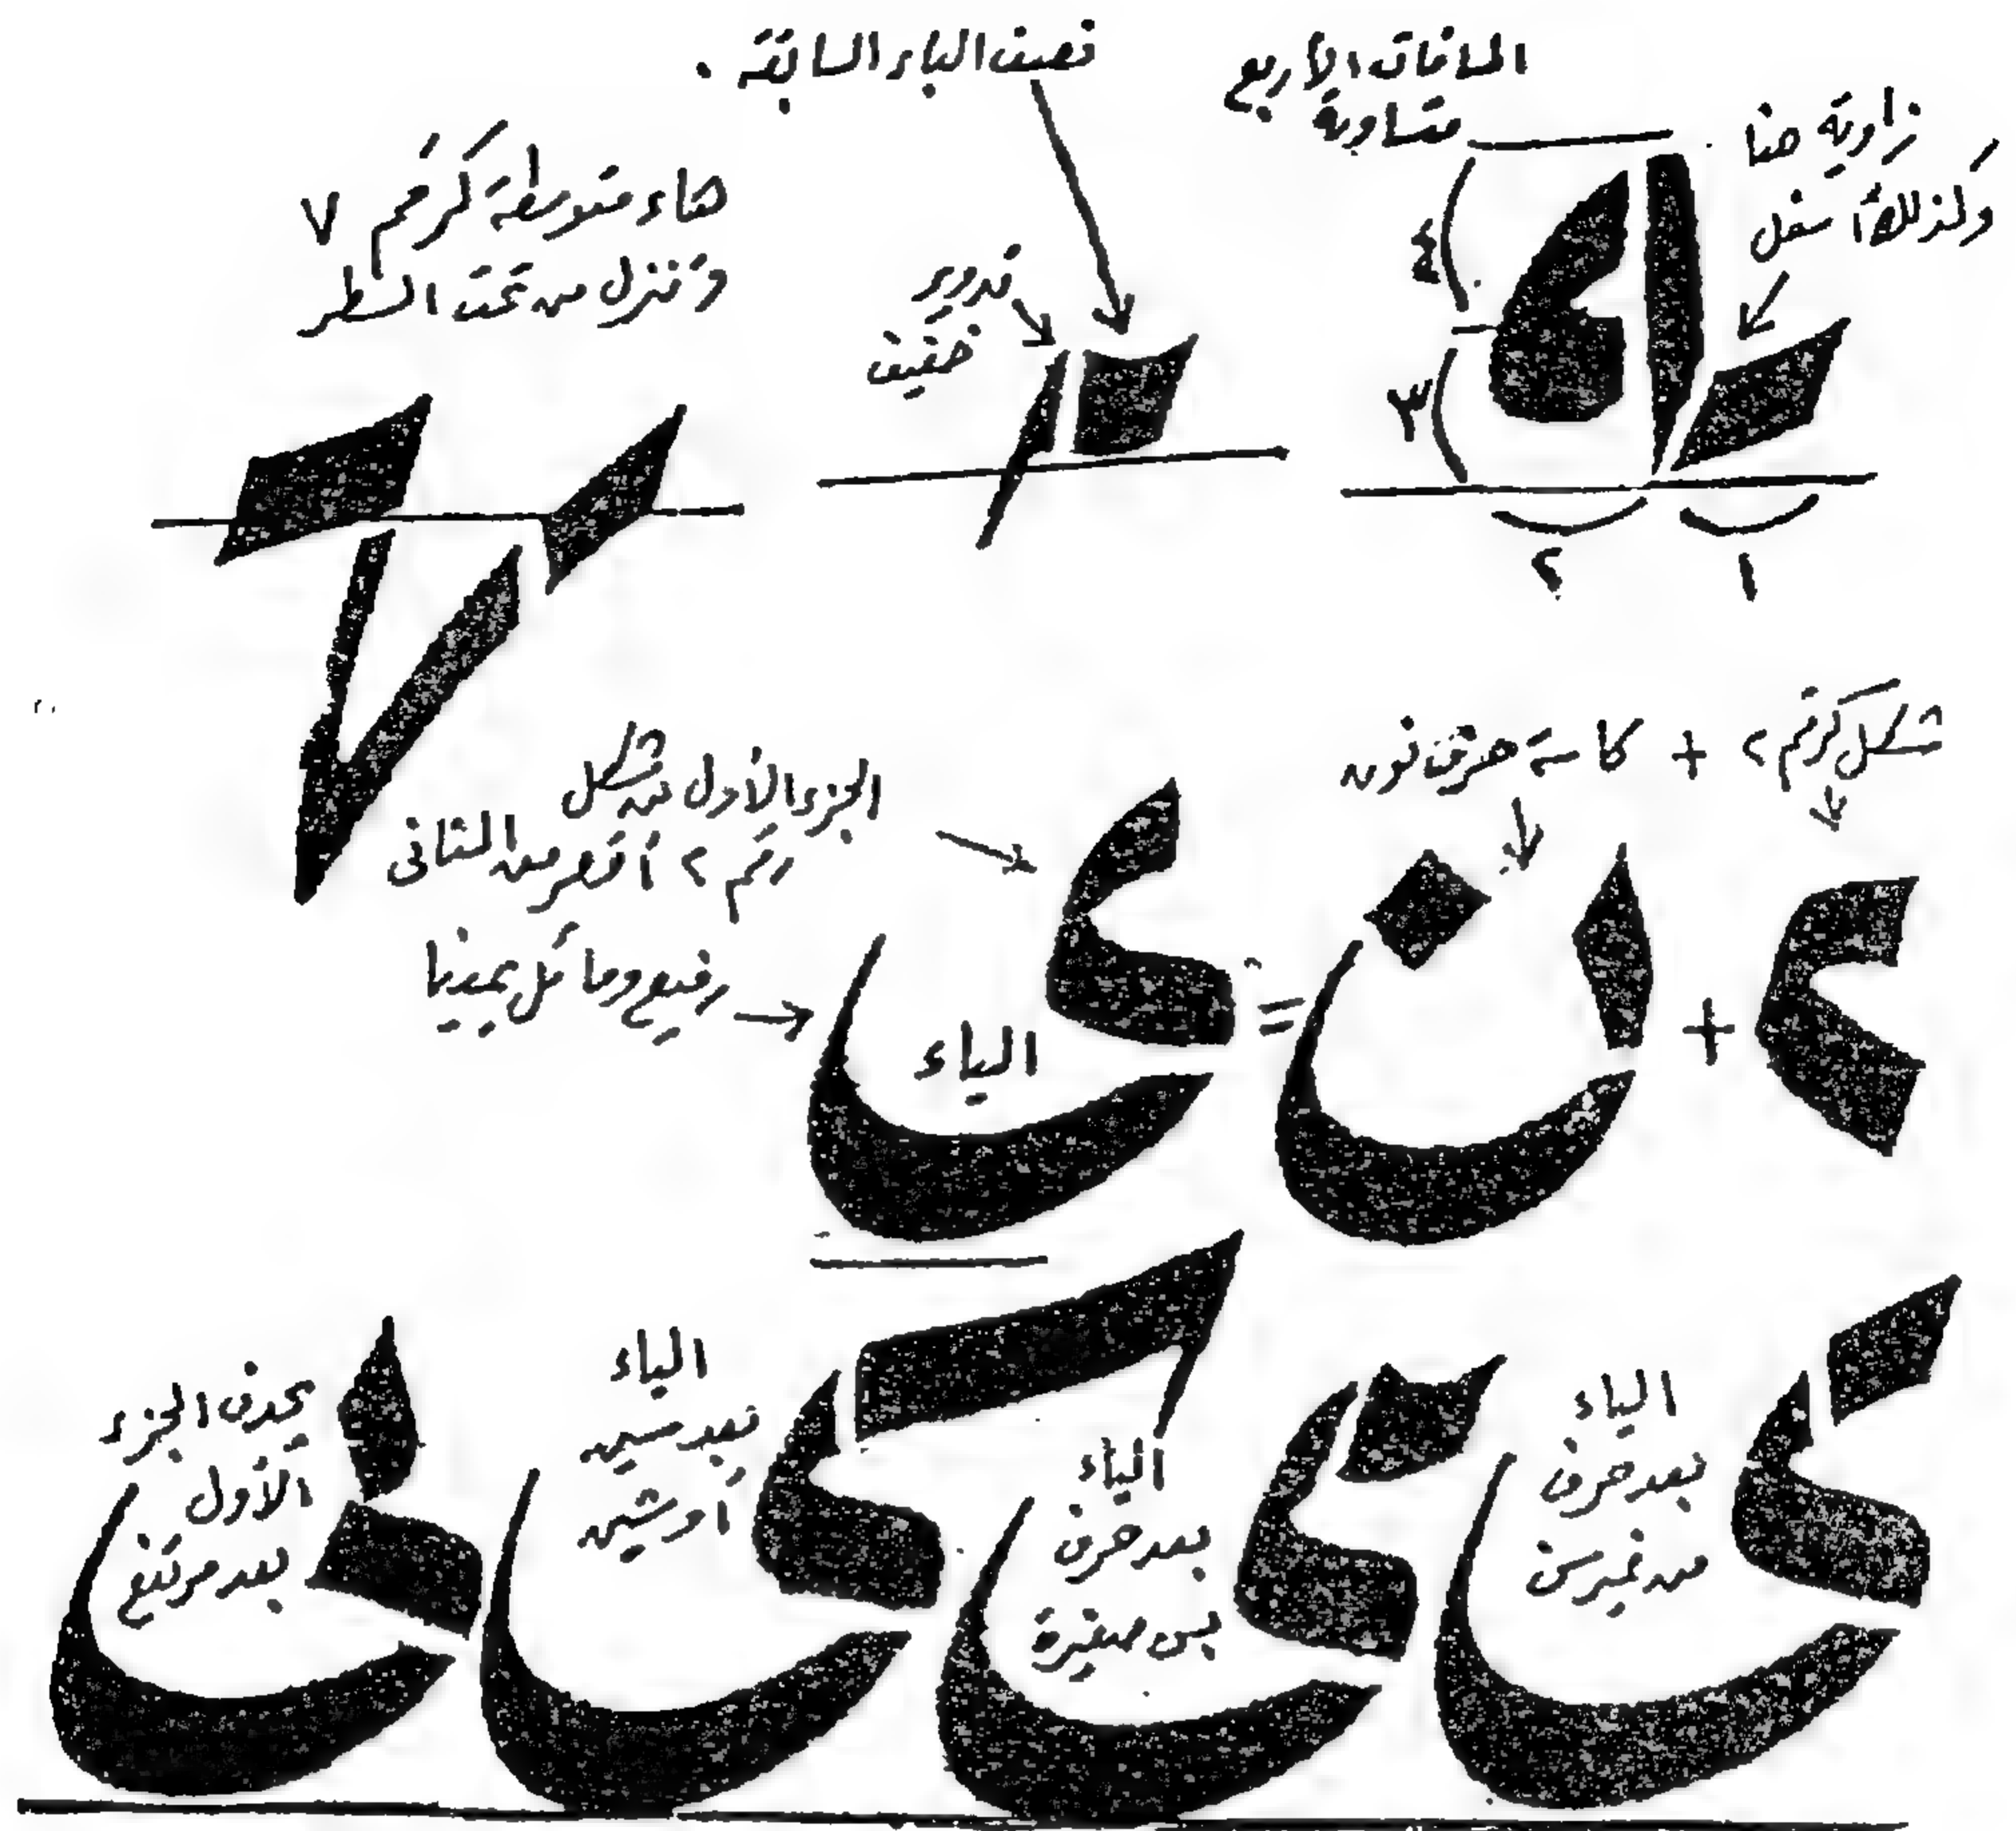 المسافات الأربع
متساوية
زاوية هنا
وكذلك أسفل
٤
٣
٢
١
نصف الباء السابقة .
تدوير
خفيف
هاء متوسطة كرقم ٧
وتنزل من تحت السطر
شكل كرقم ٢ + كاسة حرف نون
الجزء الأول من شكل
رقم ٢ أقصر من الثاني
رفيع ومائل يمينا
ن + =
الياء
الياء
بعد حرف
من غير سن
الياء
بعد حرف
بس صغيرة
الياء
بعد سين
أو شين
يحذف الجزء
الأول
بعد مرتفع